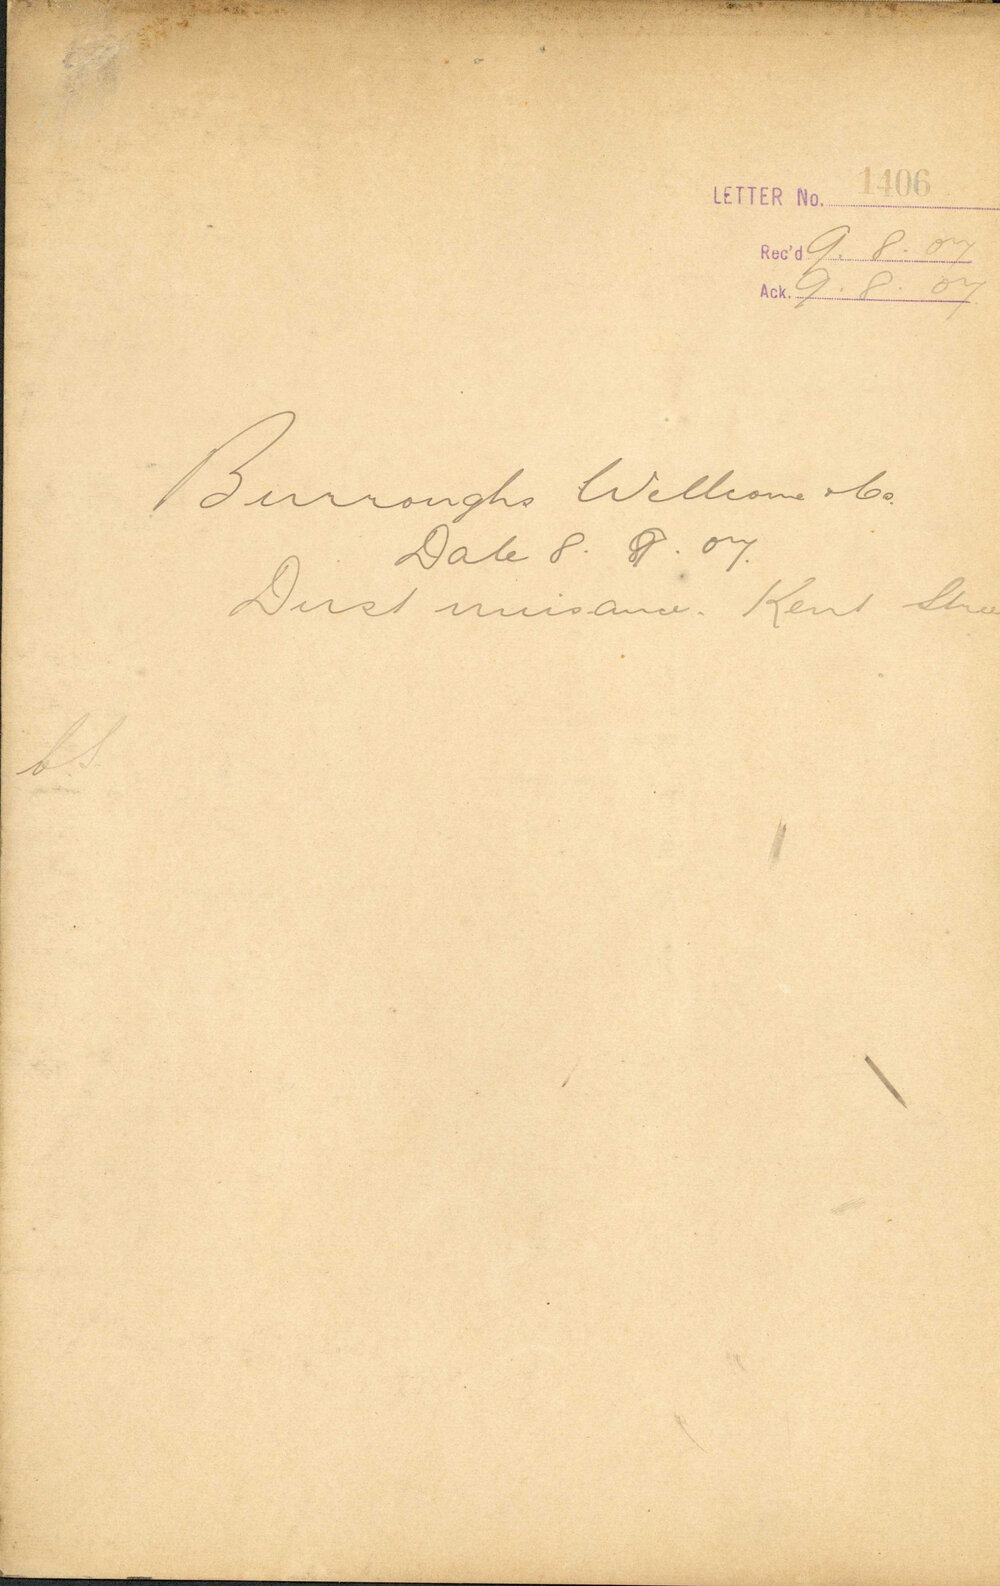 LETTER No. 1406
Rec'd 9. 8. 07
Ack. 9. 8. 07
Burroughs Wellcome & Co.
Date 8. 8. 07.
Dust nuisance. Kent Stree